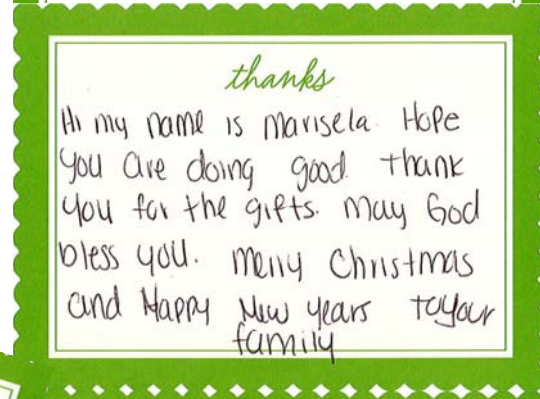 thanks
Hi my name is Marisela. Hope
you are doing good. thank
you for the gifts. may God
bless you. merry Christmas
and Happy New years to your
family